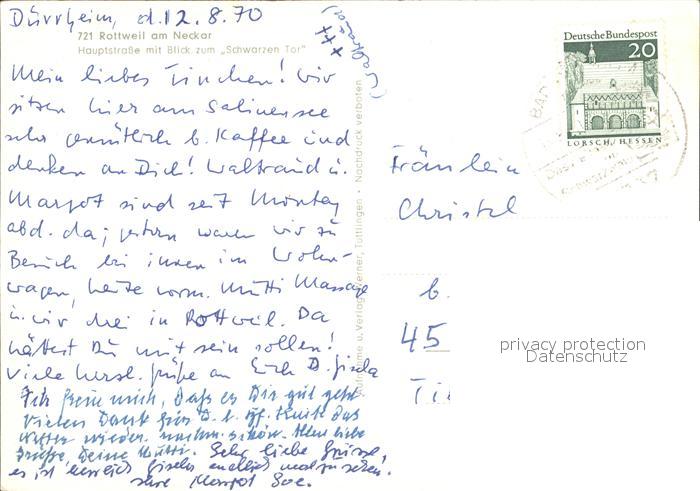 Dürrheim, d. 12.8.70
721 Rottweil am Neckar
Hauptstraße mit Blick zum „Schwarzen Tor"
Mein liebes Tinchen! Wir
sitzen hier am Salinensee
sehr gemütlich b. Kaffee und
denken an Dich! Waltraud u.
Margot sind seit Montag
abd. da; gestern waren wir zu
Besuch bei ihnen im Wohn-
wagen, heute vorm. Mutti Massage
u. wir drei in Rottweil. Da
hättest Du mit sein sollen!
Viele herzl. Grüße an Euch D. Gisela
Ich freue mich, daß es Dir gut geht
Vielen Dank für D. l. Heute das
Wetter wieder schön. Alles liebe
Grüße, Deine Mutti. Sehr liebe Grüße,
es ist herrlich Gisela endlich mal zu sehen.
Ihre Margot
(Waltraud)
+++
Aufnahme u. Verlag Werner, Tuttlingen • Nachdruck verboten
Deutsche Bundespost
20
LORSCH/HESSEN
BAD
Fräulein
Christel
b.
45
Ti
privacy protection
Datenschutz